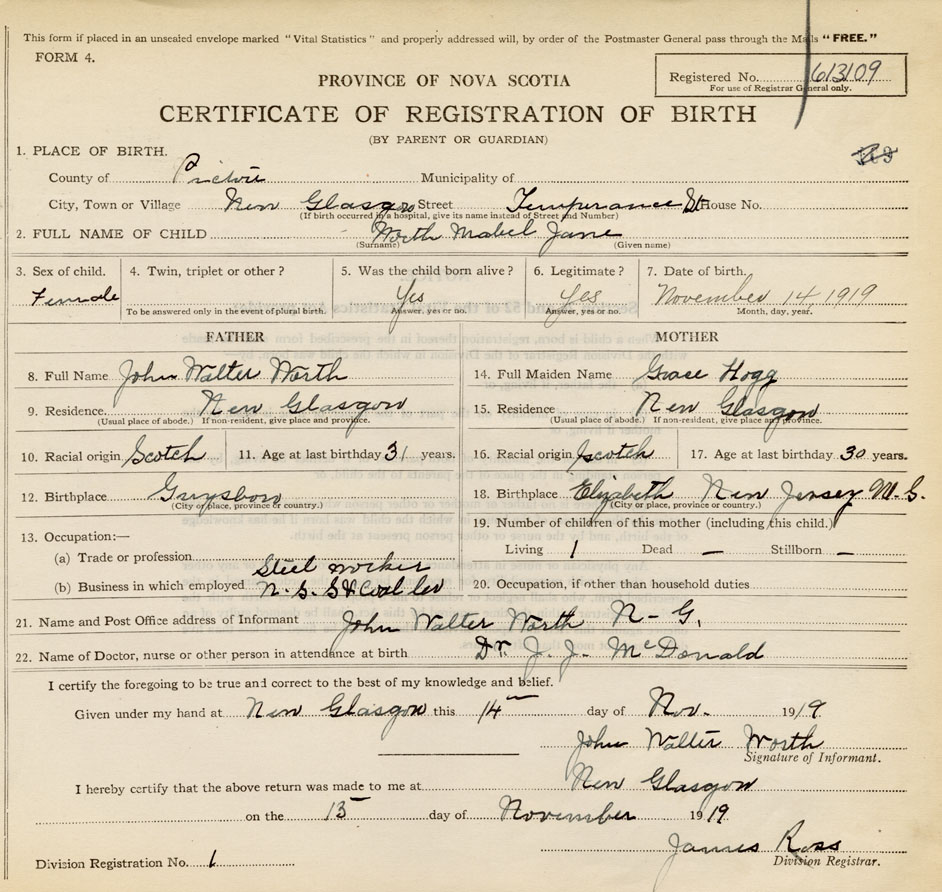 This form if placed in an unsealed envelope marked "Vital Statistics" and properly addressed will, by order of the Postmaster General pass through the Mails "FREE."
FORM 4.
Registered No. 613109
For use of Registrar General only.
PROVINCE OF NOVA SCOTIA
CERTIFICATE OF REGISTRATION OF BIRTH
(BY PARENT OR GUARDIAN)
1. PLACE OF BIRTH.
County of Pictou Municipality of
City, Town or Village New Glasgow Street Temperance St House No.
(If birth occurred in a hospital, give its name instead of Street and Number)
2. FULL NAME OF CHILD Worth Mabel Jane
(Surname) (Given name)
3. Sex of child. 4. Twin, triplet or other? 5. Was the child born alive? 6. Legitimate? 7. Date of birth.
Female Yes Yes November 14, 1919
To be answered only in the event of plural birth. Answer, yes or no. Answer, yes or no. Month, day, year.
FATHER MOTHER
8. Full Name John Walter Worth 14. Full Maiden Name Grace Hogg
9. Residence New Glasgow 15. Residence New Glasgow
(Usual place of abode.) If non-resident, give place and province. (Usual place of abode.) If non-resident, give place and province.
10. Racial origin Scotch 11. Age at last birthday 31 years. 16. Racial origin Scotch 17. Age at last birthday 30 years.
12. Birthplace Guysboro 18. Birthplace Elizabeth New Jersey
(City or place, province or country.) (City or place, province or country.)
19. Number of children of this mother (including this child.)
13. Occupation:—
Living 1 Dead — Stillborn —
(a) Trade or profession Steel worker
(b) Business in which employed N. S. S & Coal Co 20. Occupation, if other than household duties
21. Name and Post Office address of Informant John Walter Worth N-G,
22. Name of Doctor, nurse or other person in attendance at birth Dr. J. J. McDonald
I certify the foregoing to be true and correct to the best of my knowledge and belief.
Given under my hand at New Glasgow this 14 day of Nov. 1919
John Walter Worth
Signature of Informant.
I hereby certify that the above return was made to me at New Glasgow
on the 15 day of November 1919
James Ross
Division Registrar.
Division Registration No. 1